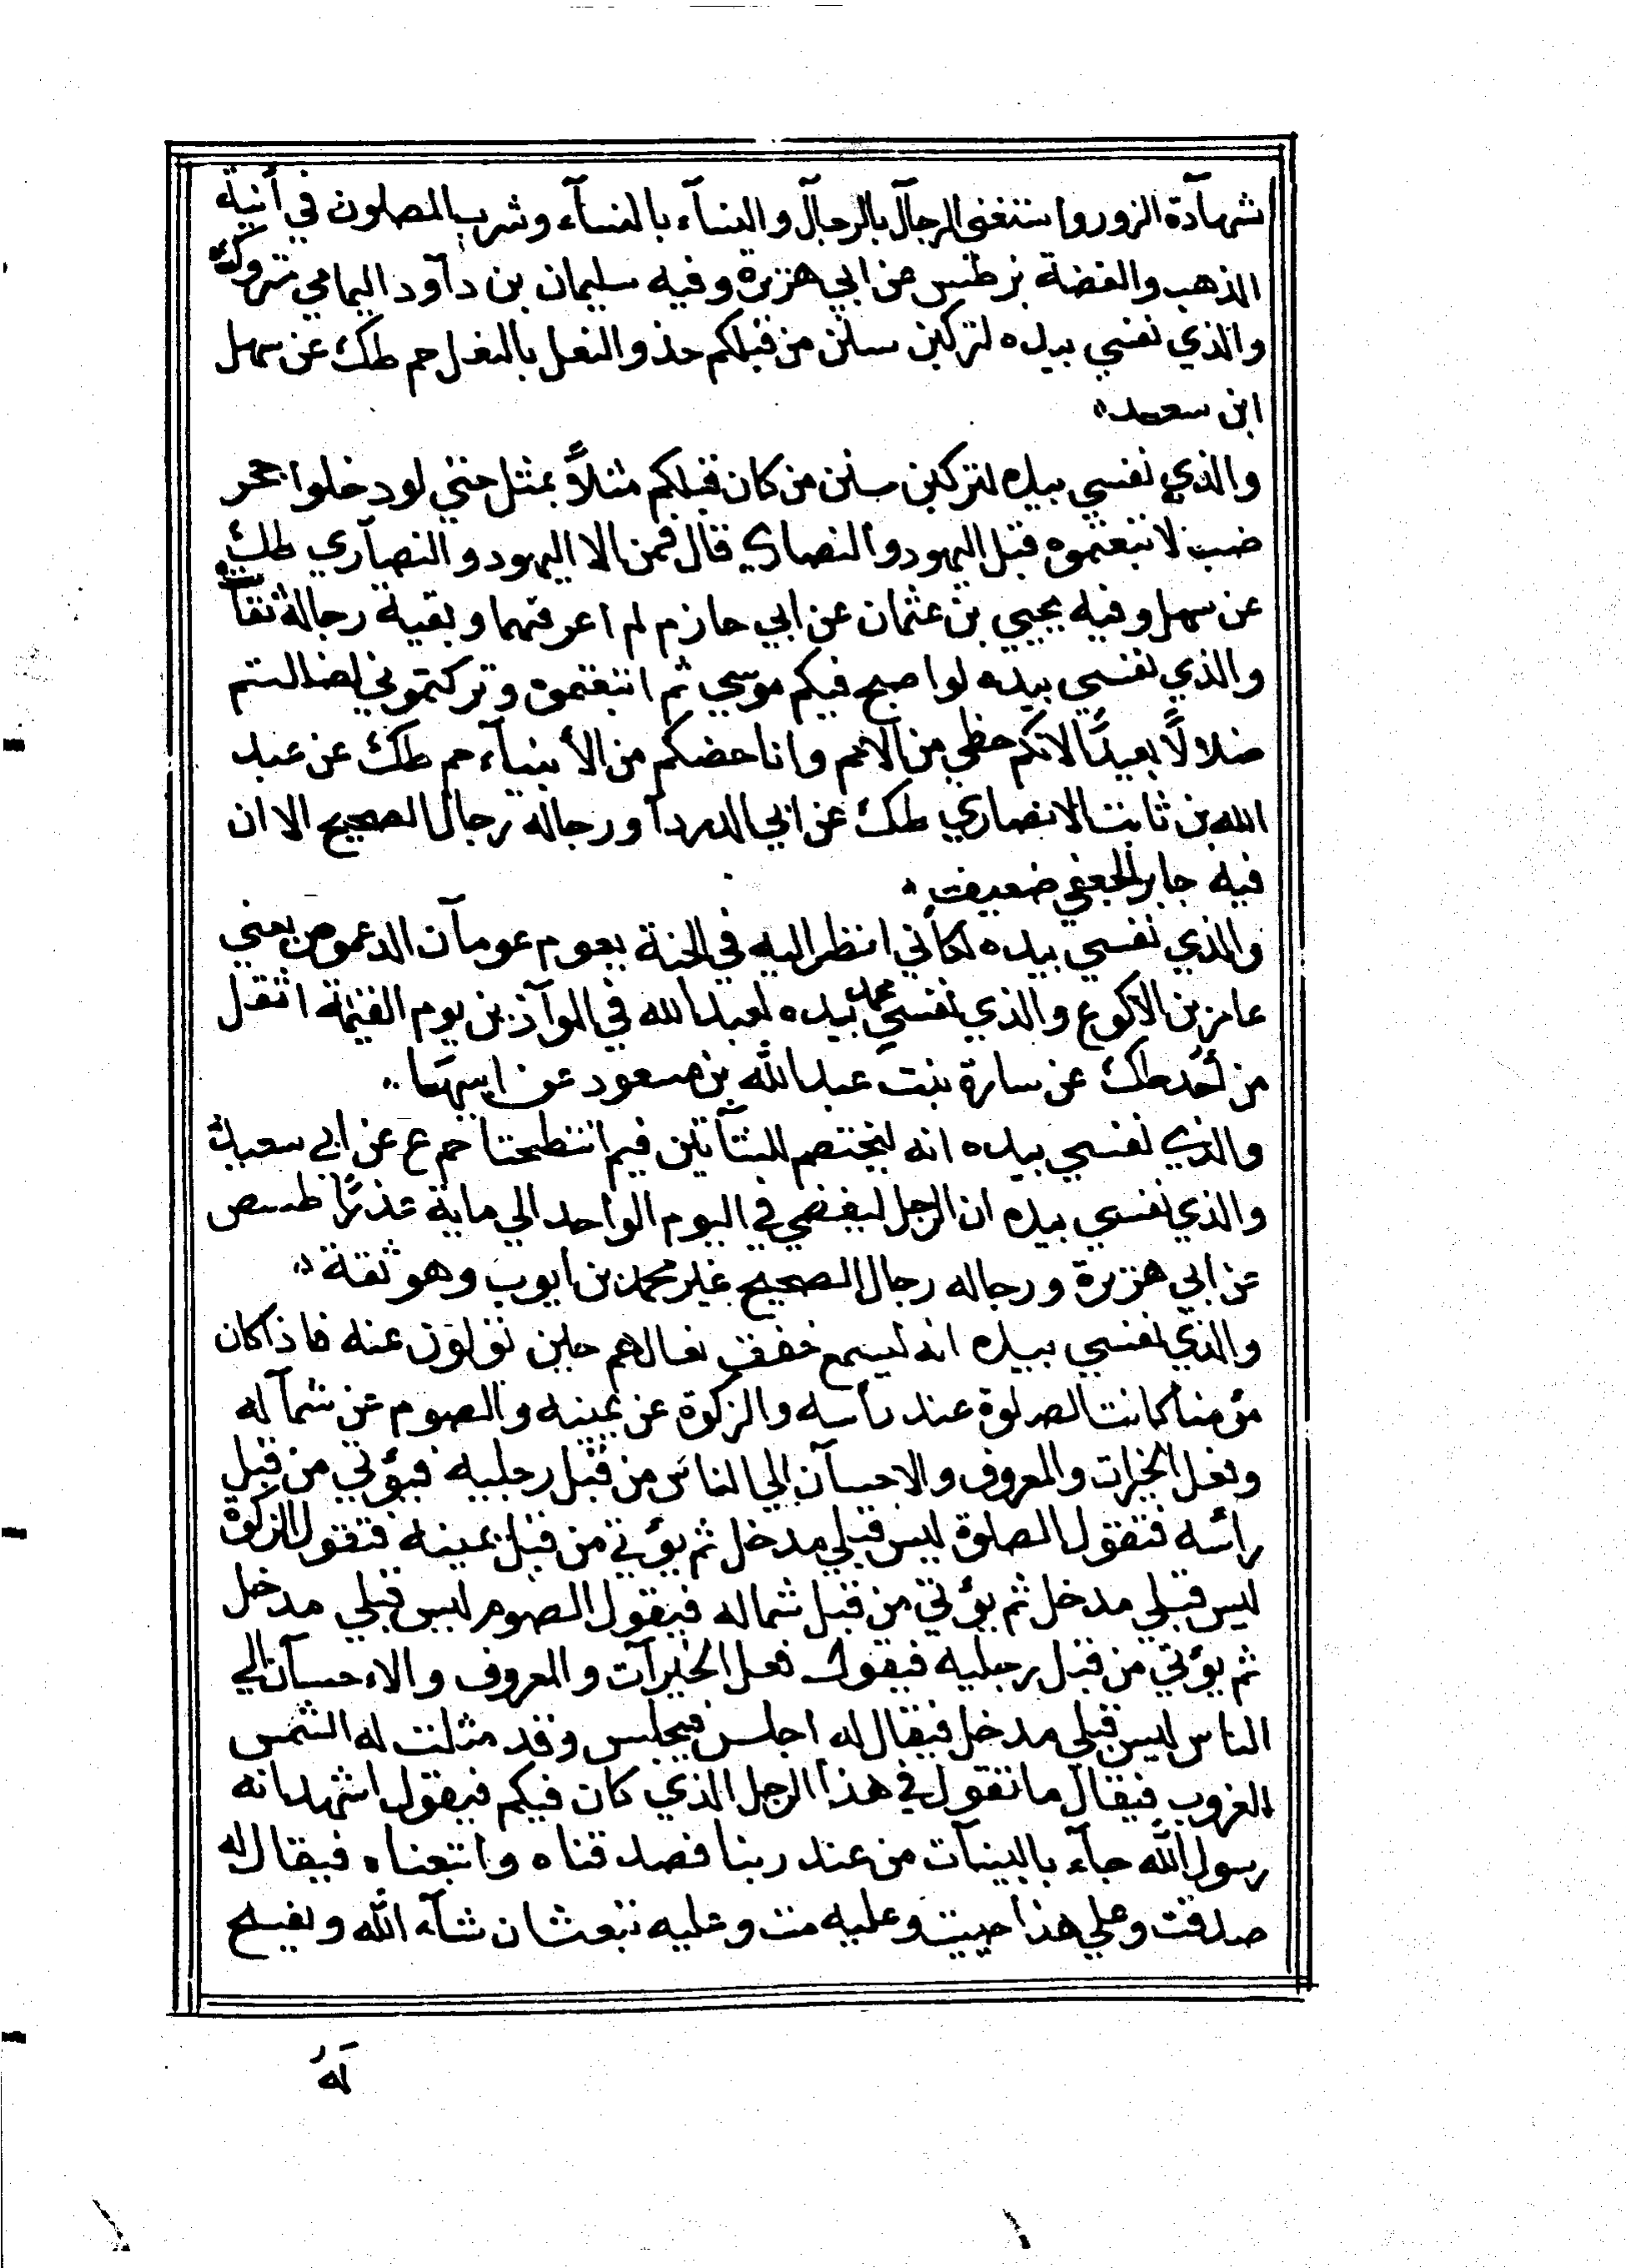 شهآدة الزور واستغنى الرجآل بالرجآل والنسآء بالنسآء وشرب المصلون في أنية
الذهب والفضة بز طس عن ابي هريرة وفيه سليمان بن دآود اليمامي متروك
والذي نفسي بيده لتركبن سنن من قبلكم حذو النعل بالنعل حم طك عن سهل
ابن سعيد
والذي نفسي بيده لتركبن سنن من كان قبلكم مثلاً بمثل حتي لو دخلوا جحر
ضب لاتبعتموه قيل اليهود والنصاري قال فمن الا اليهود والنصآري طك
عن سهل وفيه يحيي بن عثمان عن ابي حازم لم اعرفهما وبقية رجاله ثقآت
والذي نفسي بيده لو اصبح فيكم موسي ثم اتبعتموه وتركتموني لضللتم
ضلالاً بعيدًا لانكم حظي من الامم وانا حضكم من الأنبيآء حم طك عن عبد
الله بن ثابت الانصاري طك عن ابي الدردآ ورجاله رجال الصحيح الا ان
فيه جابر الجعفي ضعيف
والذي نفسي بيده لكأني انظر اليه في الجنة يعوم عومآن الدعموص يعني
عامر بن الاكوع والذي نفسي محمد بيده لعبد الله في الموآذين يوم القيمة اثقل
من أحد طك عن سارة بنت عبد الله بن مسعود عن ابيها
والذي نفسي بيده انه ليختصم للشآتين فيم انتطحتا حم ع عن ابي سعيد
والذي نفسي بيده ان الرجل ليفضي في اليوم الواحد الي ماية عذرآ طسص
عن ابي هريرة ورجاله رجال الصحيح غير محمد بن ايوب وهو ثقة
والذي نفسي بيده انه ليسمع خفق نعالهم حين تولون عنه فاذا كان
مؤمنا كانت الصلوة عند رأسه والزكوة عن يمينه والصوم عن شمآله
وفعل الخيرات والمعروف والاحسآن الي الناس من قبل رجليه فيؤتي من قبل
رأسه فتقول الصلوة ليس قبلي مدخل ثم يؤتي من قبل يمينه فتقول الزكوة
ليس قبلي مدخل ثم يؤتي من قبل شماله فيقول الصوم ليس قبلي مدخل
ثم يؤتي من قبل رجليه فيقول فعل الخيرآت والمعروف والاحسآن الي
الناس ليس قبلي مدخل فيقال له اجلس فيجلس وقد مثلت له الشمس
للغروب فيقال ما تقول في هذا الرجل الذي كان فيكم فيقول اشهد انه
رسول الله جآء بالبينآت من عند ربنا فصدقناه واتبعناه فيقال له
صدقت وعلي هذا حييت وعليه مت وعليه تبعث ان شآء الله ويفسح
له